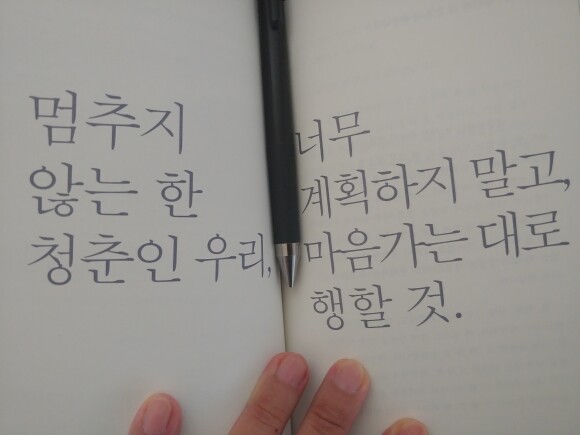 멈추지
않는 한
청춘인 우리,
너무
계획하지 말고,
마음가는 대로
행할 것.